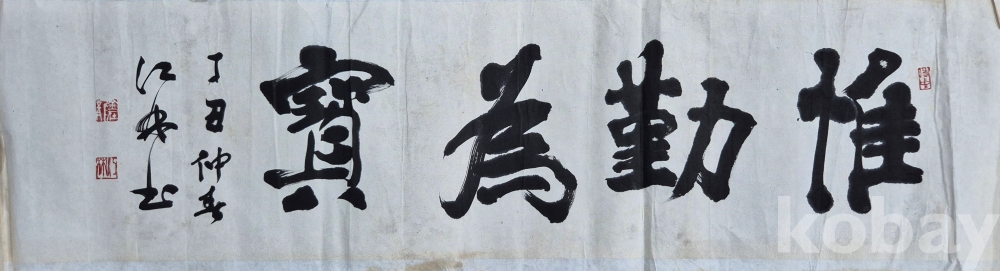 惟勤為寶
丁丑仲春
江林書
kobay